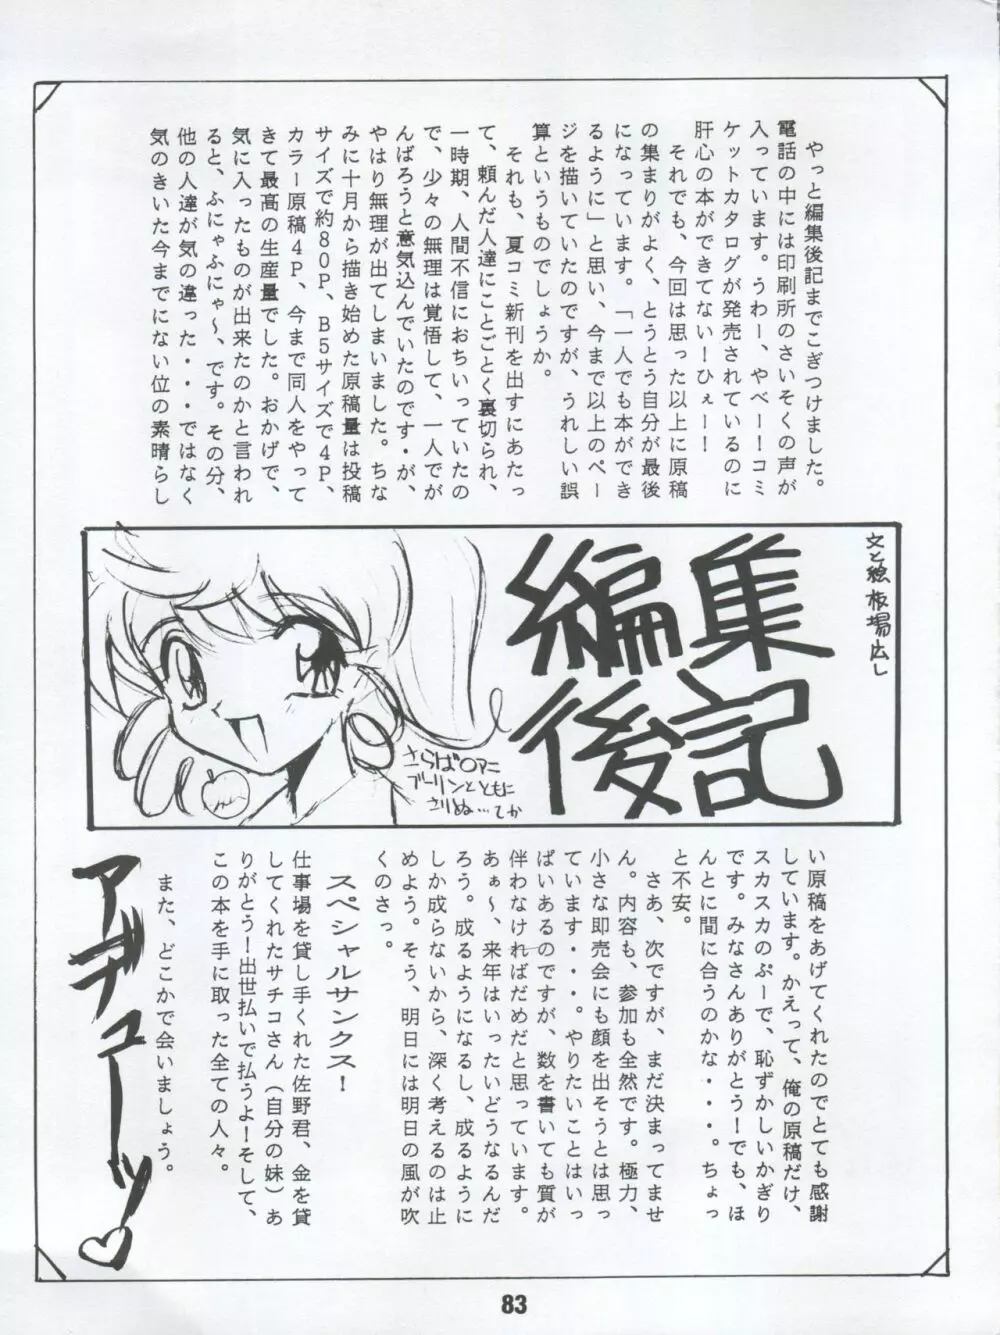 やっと編集後記までこぎつけました。
電話の中には印刷所のさいそくの声が
入っています。うわー、やべー！コミ
ケットカタログが発売されているのに
肝心の本ができてない！ひぇー！
それでも、今回は思った以上に原稿
の集まりがよく、とうとう自分が最後
になっています。「一人でも本ができ
るように」と思い、今まで以上のペー
ジを描いていたのですが、うれしい誤
算というものでしょうか。
それも、夏コミ新刊を出すにあたっ
て、頼んだ人達にことごとく裏切られ、
一時期、人間不信におちいっていたの
で、少々の無理は覚悟して、一人でが
んばろうと意気込んでいたのです・が、
やはり無理が出てしまいました。ちな
みに十月から描き始めた原稿量は投稿
サイズで約80P、B5サイズで4P、
カラー原稿4P、今まで同人をやって
きて最高の生産量でした。おかげで、
気に入ったものが出来たのかと言われ
ると、ふにゃふにゃ〜、です。その分、
他の人達が気の違った・・・ではなく
気のきいた今までにない位の素晴らし
文と絵 板場広し
編集
後記
さらば〇アニ
ブーリンとともに
さりぬ…てか
い原稿をあげてくれたのでとても感謝
しています。かえって、俺の原稿だけ、
スカスカのぷーで、恥ずかしいかぎり
です。みなさんありがとう！でも、ほ
んとに間に合うのかな・・・。ちょっ
と不安。
さあ、次ですが、まだ決まってませ
ん。内容も、参加も全然です。極力、
小さな即売会にも顔を出そうとは思っ
ています・・・。やりたいことはいっ
ぱいあるのですが、数を書いても質が
伴わなければだめだと思っています。
あぁ〜、来年はいったいどうなるんだ
ろう。成るようになるし、成るように
しか成らないから、深く考えるのは止
めよう。そう、明日には明日の風が吹
くのさっ。
スペシャルサンクス！
仕事場を貸し手くれた佐野君、金を貸
してくれたサチコさん（自分の妹）あ
りがとう！出世払いで払うよ！そして、
この本を手に取った全ての人々。
また、どこかで会いましょう。
アデューッ♡
83